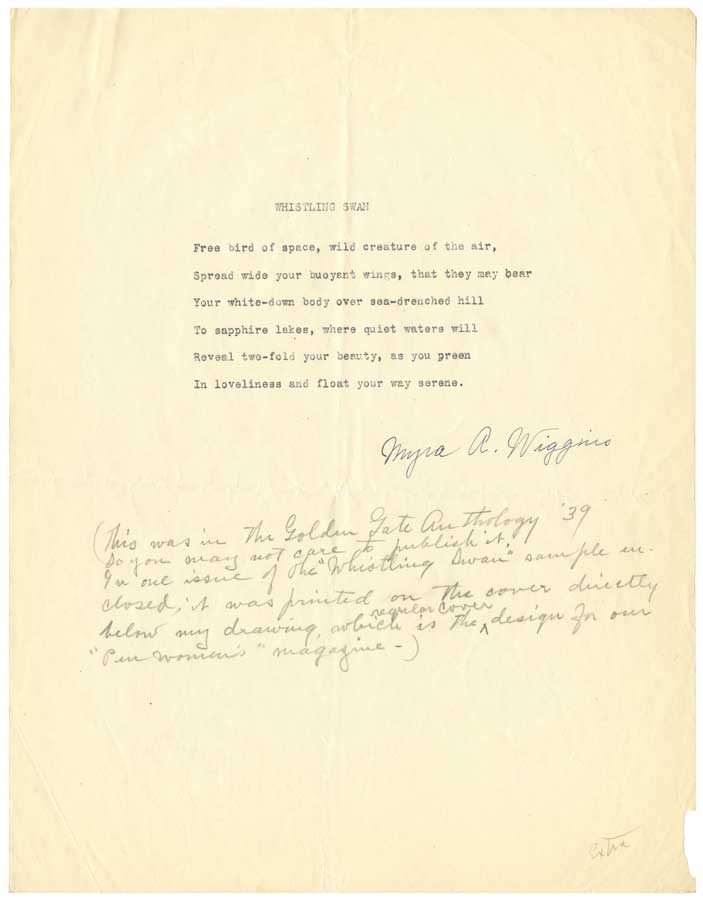 WHISTLING SWAN
Free bird of space, wild creature of the air,
Spread wide your buoyant wings, that they may bear
Your white-down body over sea-drenched hill
To sapphire lakes, where quiet waters will
Reveal two-fold your beauty, as you preen
In loveliness and float your way serene.
Myra A. Wiggins
(This was in The Golden Gate Anthology '39
So you may not care to publish it.
In one issue of the "Whistling Swan" sample en-
closed, it was printed on the cover directly
below my drawing, which is the regular cover design for our
"Pen Women's" magazine -)
extra